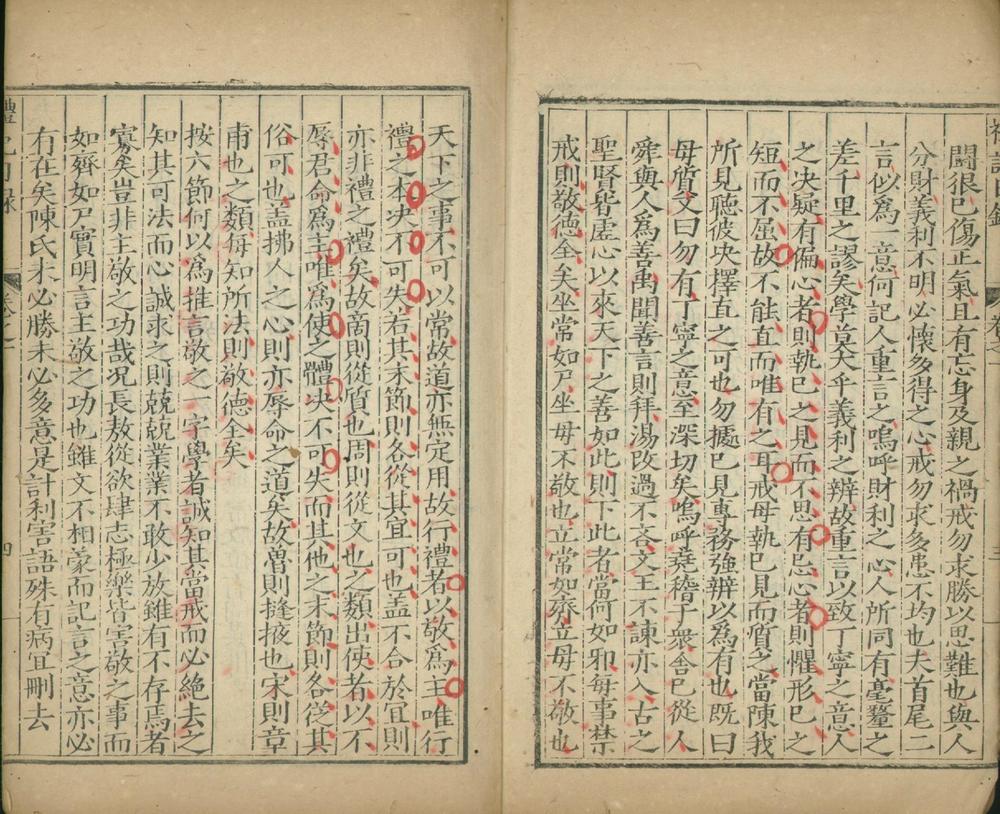 鬪很已傷正氣且有忘身及親之禍戒勿求勝以思難也與人
分財義利不明必懷多得之心戒勿求多患不均也夫首尾二
言似爲一意何記人重言之嗚呼財利之心人所同有毫釐之
差千里之謬矣學莫大乎義利之辨故重言以致丁寧之意人
之决疑有偏心者則執已之見而不思有忌心者則懼形已之
短而不屈故不能直而唯有之耳戒毋執已見而質之當陳我
所見聽彼决擇直之可也勿據已見專務強辨以爲有也既曰
毋質又曰勿有丁寧之意至深切矣嗚呼堯稽于衆舍已從人
舜與人爲善禹聞善言則拜湯改過不吝文王不諫亦入古之
聖賢皆虛心以來天下之善如此則下此者當何如邪每事禁
戒則敬德全矣坐常如尸坐毋不敬也立常如齊立毋不敬也
天下之事不可以常故道亦無定用故行禮者以敬爲主唯行
禮之本决不可失若其末節則各從其宜可也盖不合於宜則
亦非禮之禮矣故商則從質也周則從文也之類出使者以不
辱君命爲主唯爲使之體决不可失而其他之末節則各從其
俗可也盖拂人之心則亦辱命之道矣故魯則縫掖也宋則章
甫也之類每知所法則敬德全矣
按六節何以爲推言敬之一字學者誠知其當戒而必絶去之
知其可法而心誠求之則兢兢業業不敢少放雖有不存焉者
寡矣豈非主敬之功哉况長敖從欲肆志極樂皆害敬之事而
如齊如尸實明言主敬之功也雖文不相蒙而記言之意亦必
有在矣陳氏未必勝未必多意是計利害語殊有病宜刪去
禮記日録
四